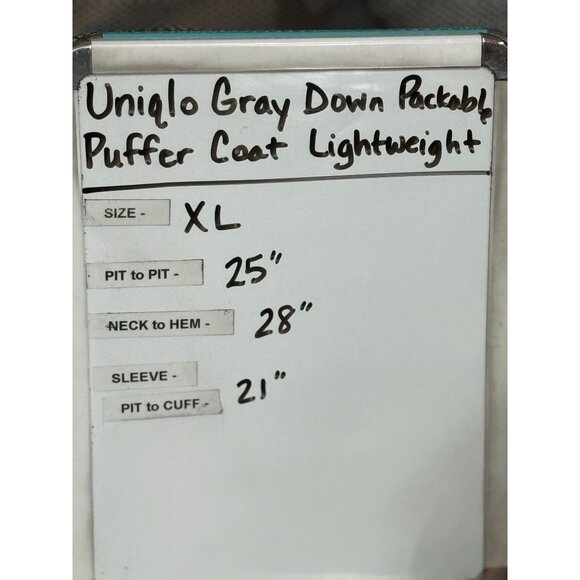 Uniqlo Gray Down Packable
Puffer Coat Lightweight
SIZE - XL
PIT to PIT - 25"
NECK to HEM - 28"
SLEEVE -
PIT to CUFF - 21"